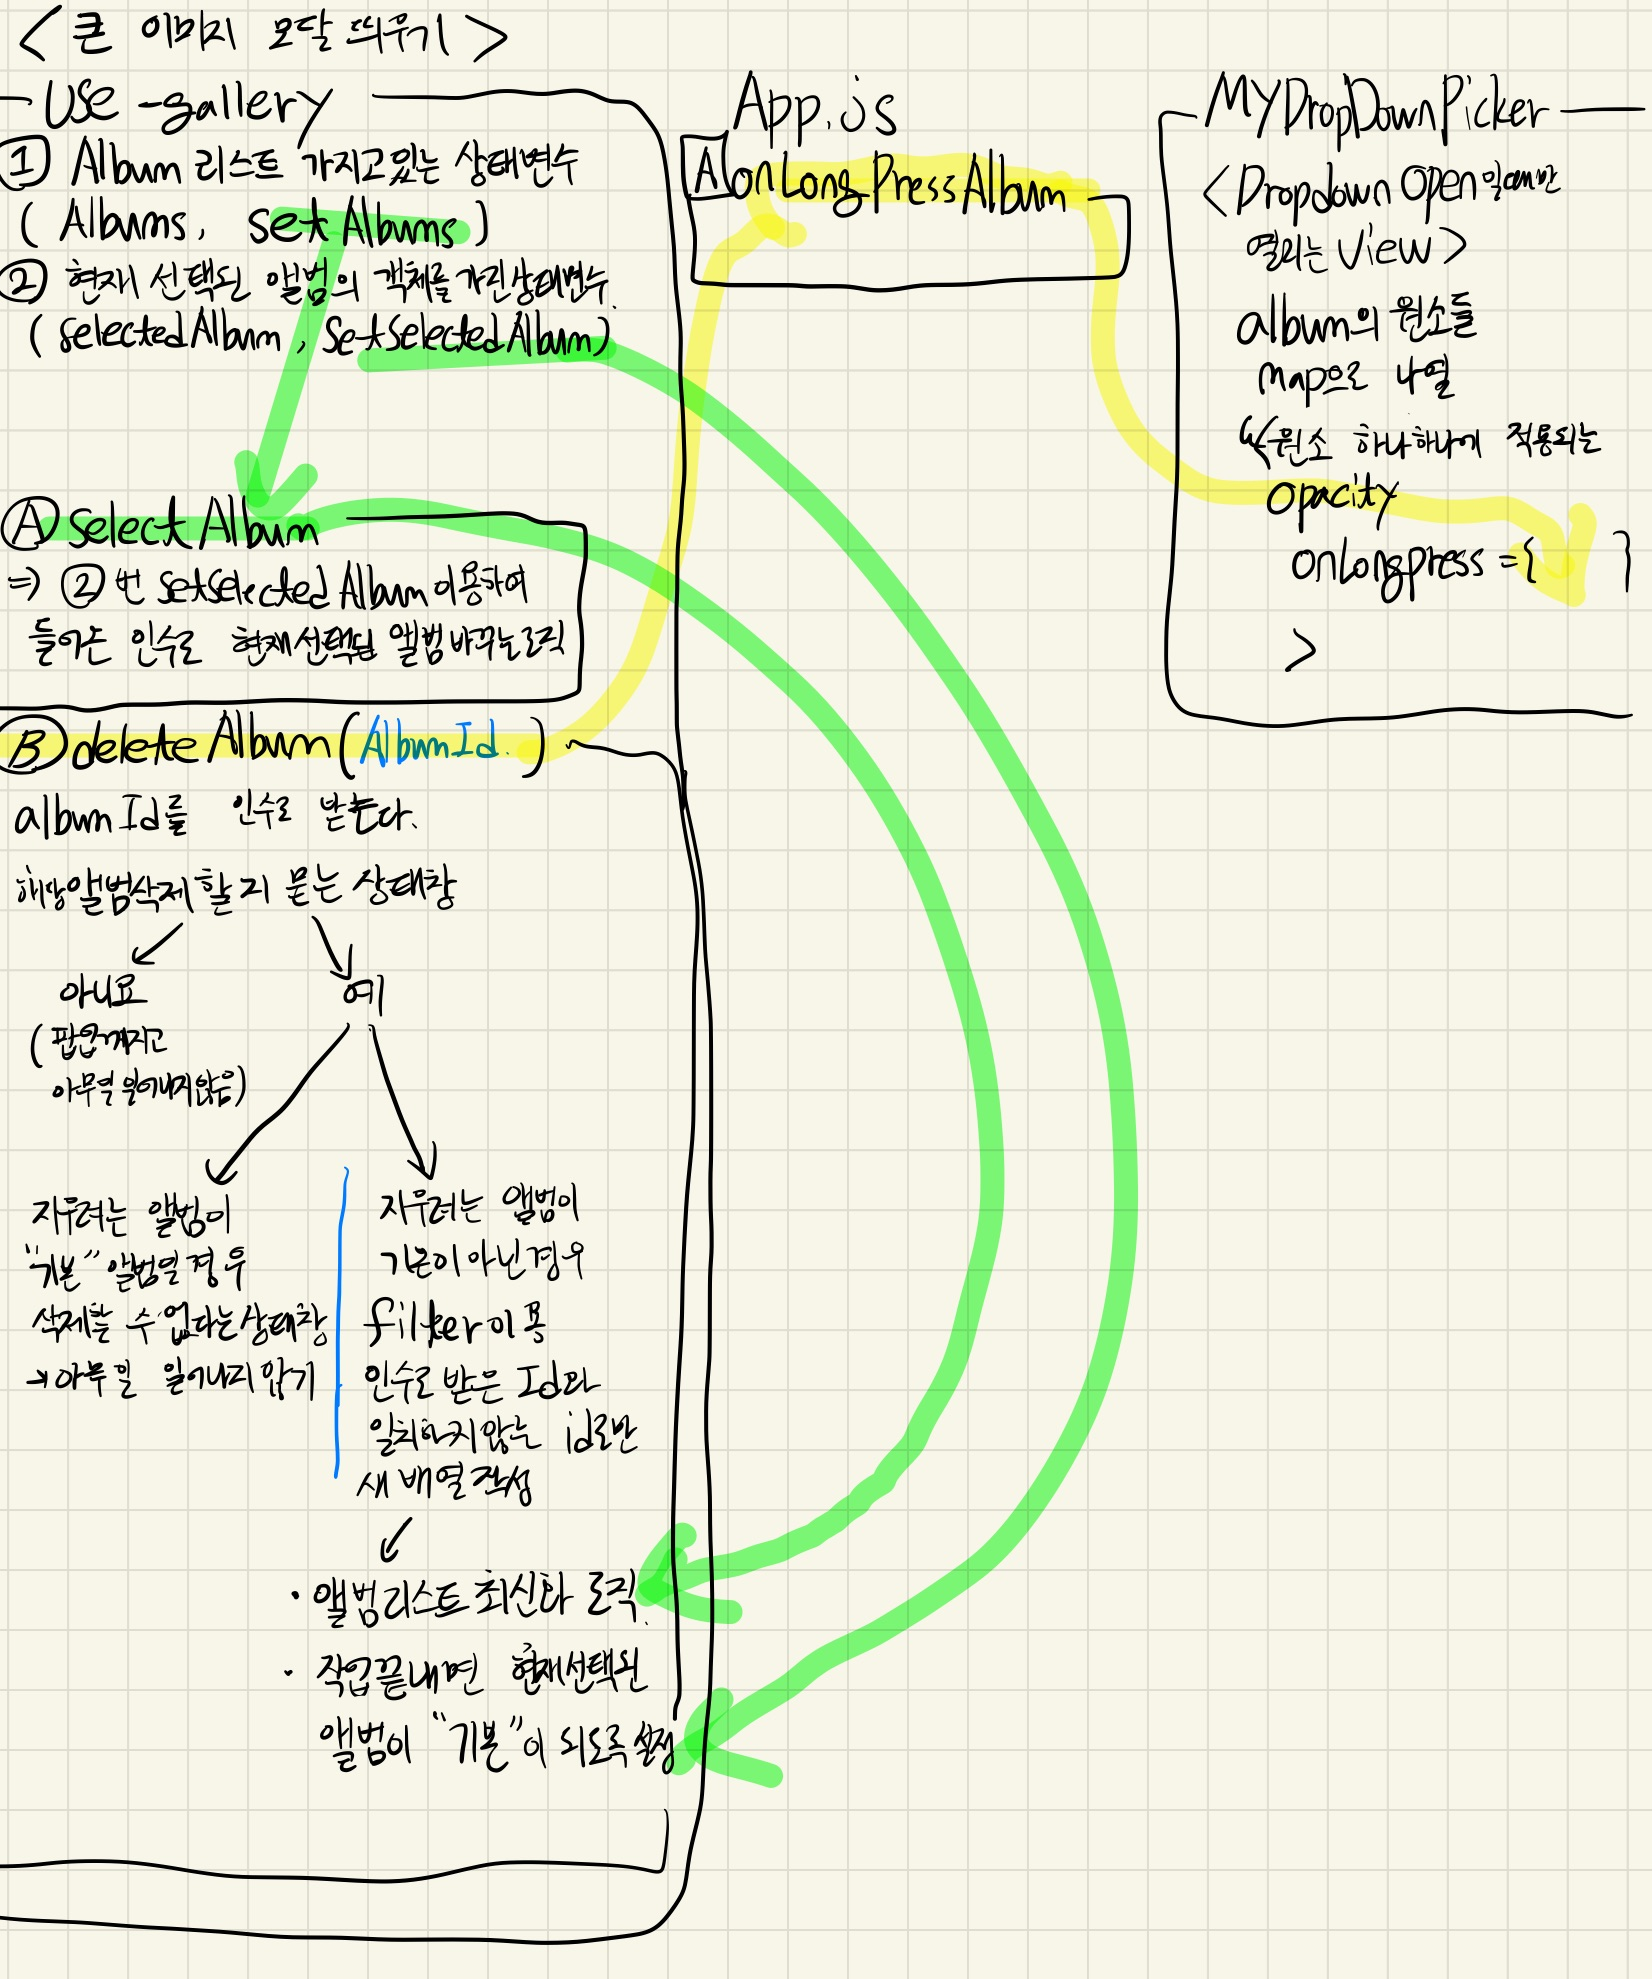 <큰 이미지 모달 띄우기>
Use-gallery
① Album 리스트 가지고 있는 상태변수
(Albums, setAlbums)
② 현재 선택된 앨범의 객체를 가진 상태변수.
(selectedAlbum, SetSelectedAlbum)
Ⓐ Select Album
⇒ ② 번 setselected Album 이용하여
들어온 인수로 현재선택된 앨범 바꾸는 로직
Ⓑ delete Album (AlbumId.)
album Id를 인수로 받는다.
해당 앨범삭제 할지 묻는 상태창
아니요
예
(팝업 꺼지고
아무일 일어나지 않음)
지우려는 앨범이
"기본" 앨범일 경우
삭제할 수 없다는 상태창
→ 아무일 일어나지 않기
지우려는 앨범이
기본이 아닌 경우
filter 이용
인수로 받은 Id과
일치하지 않는 id로만
새 배열 작성
· 앨범리스트 최신화 로직.
· 작업끝내면 현재선택된
앨범이 "기본"이 되도록 설정
App.js
A onLongPressAlbum
MYDropDownPicker
<Dropdown Open일때만
열리는 View>
album의 원소들
Map으로 나열
<원소 하나하나에 적용되는
Opacity
onLongpress={ }
>